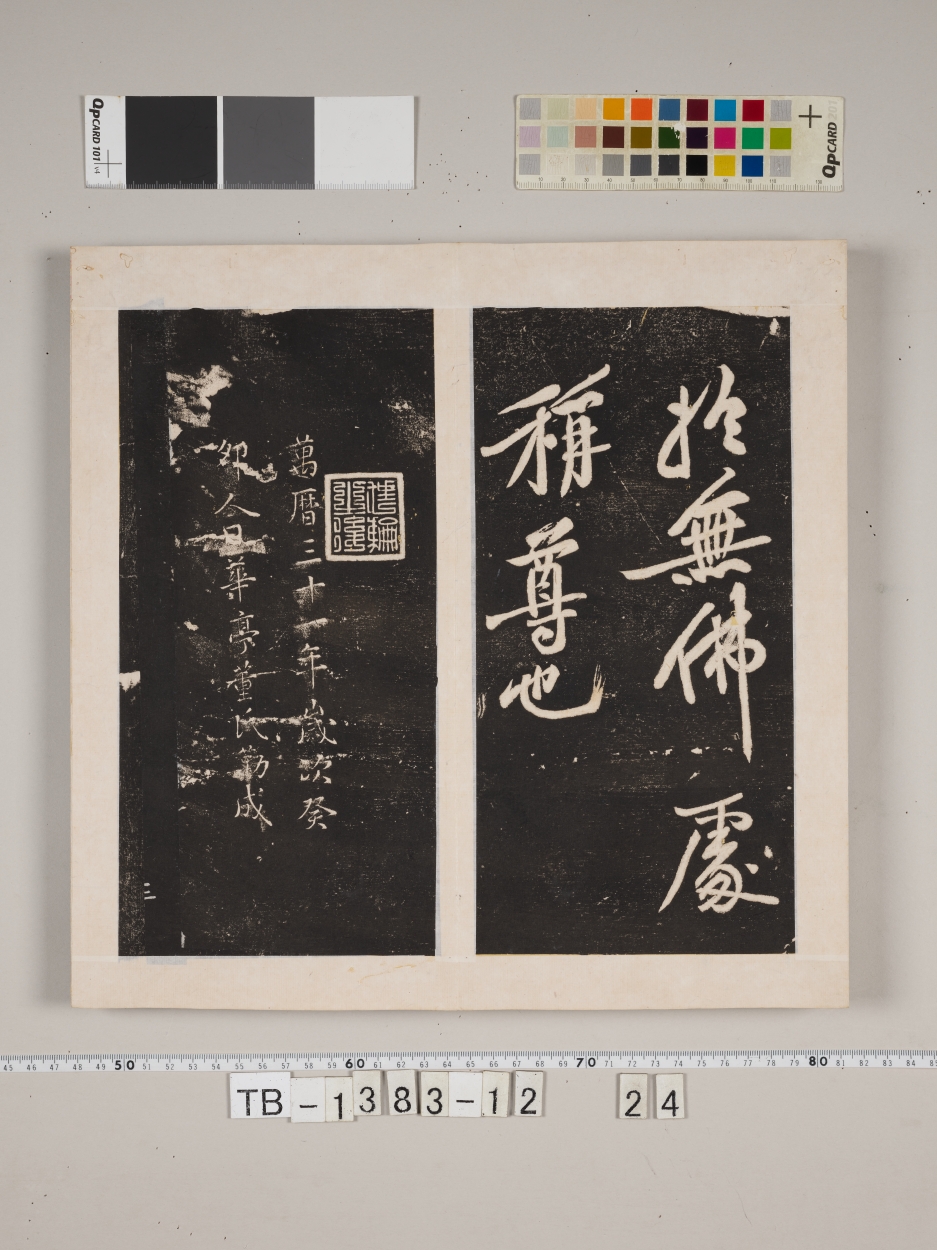 QpCARD 101 v4
QpCARD 201
10 20 30 40 50 60 70 80 90 100 110 120
於無佛處
稱尊也
萬曆三十一年歲次癸
卯人日華亭董氏勒成
三
45 46 47 48 49 50 51 52 53 54 55 56 57 58 59 60 61 62 63 64 65 66 67 68 69 70 71 72 73 74 75 76 77 78 79 80 81 82 83 84 85
TB-1383-12 24